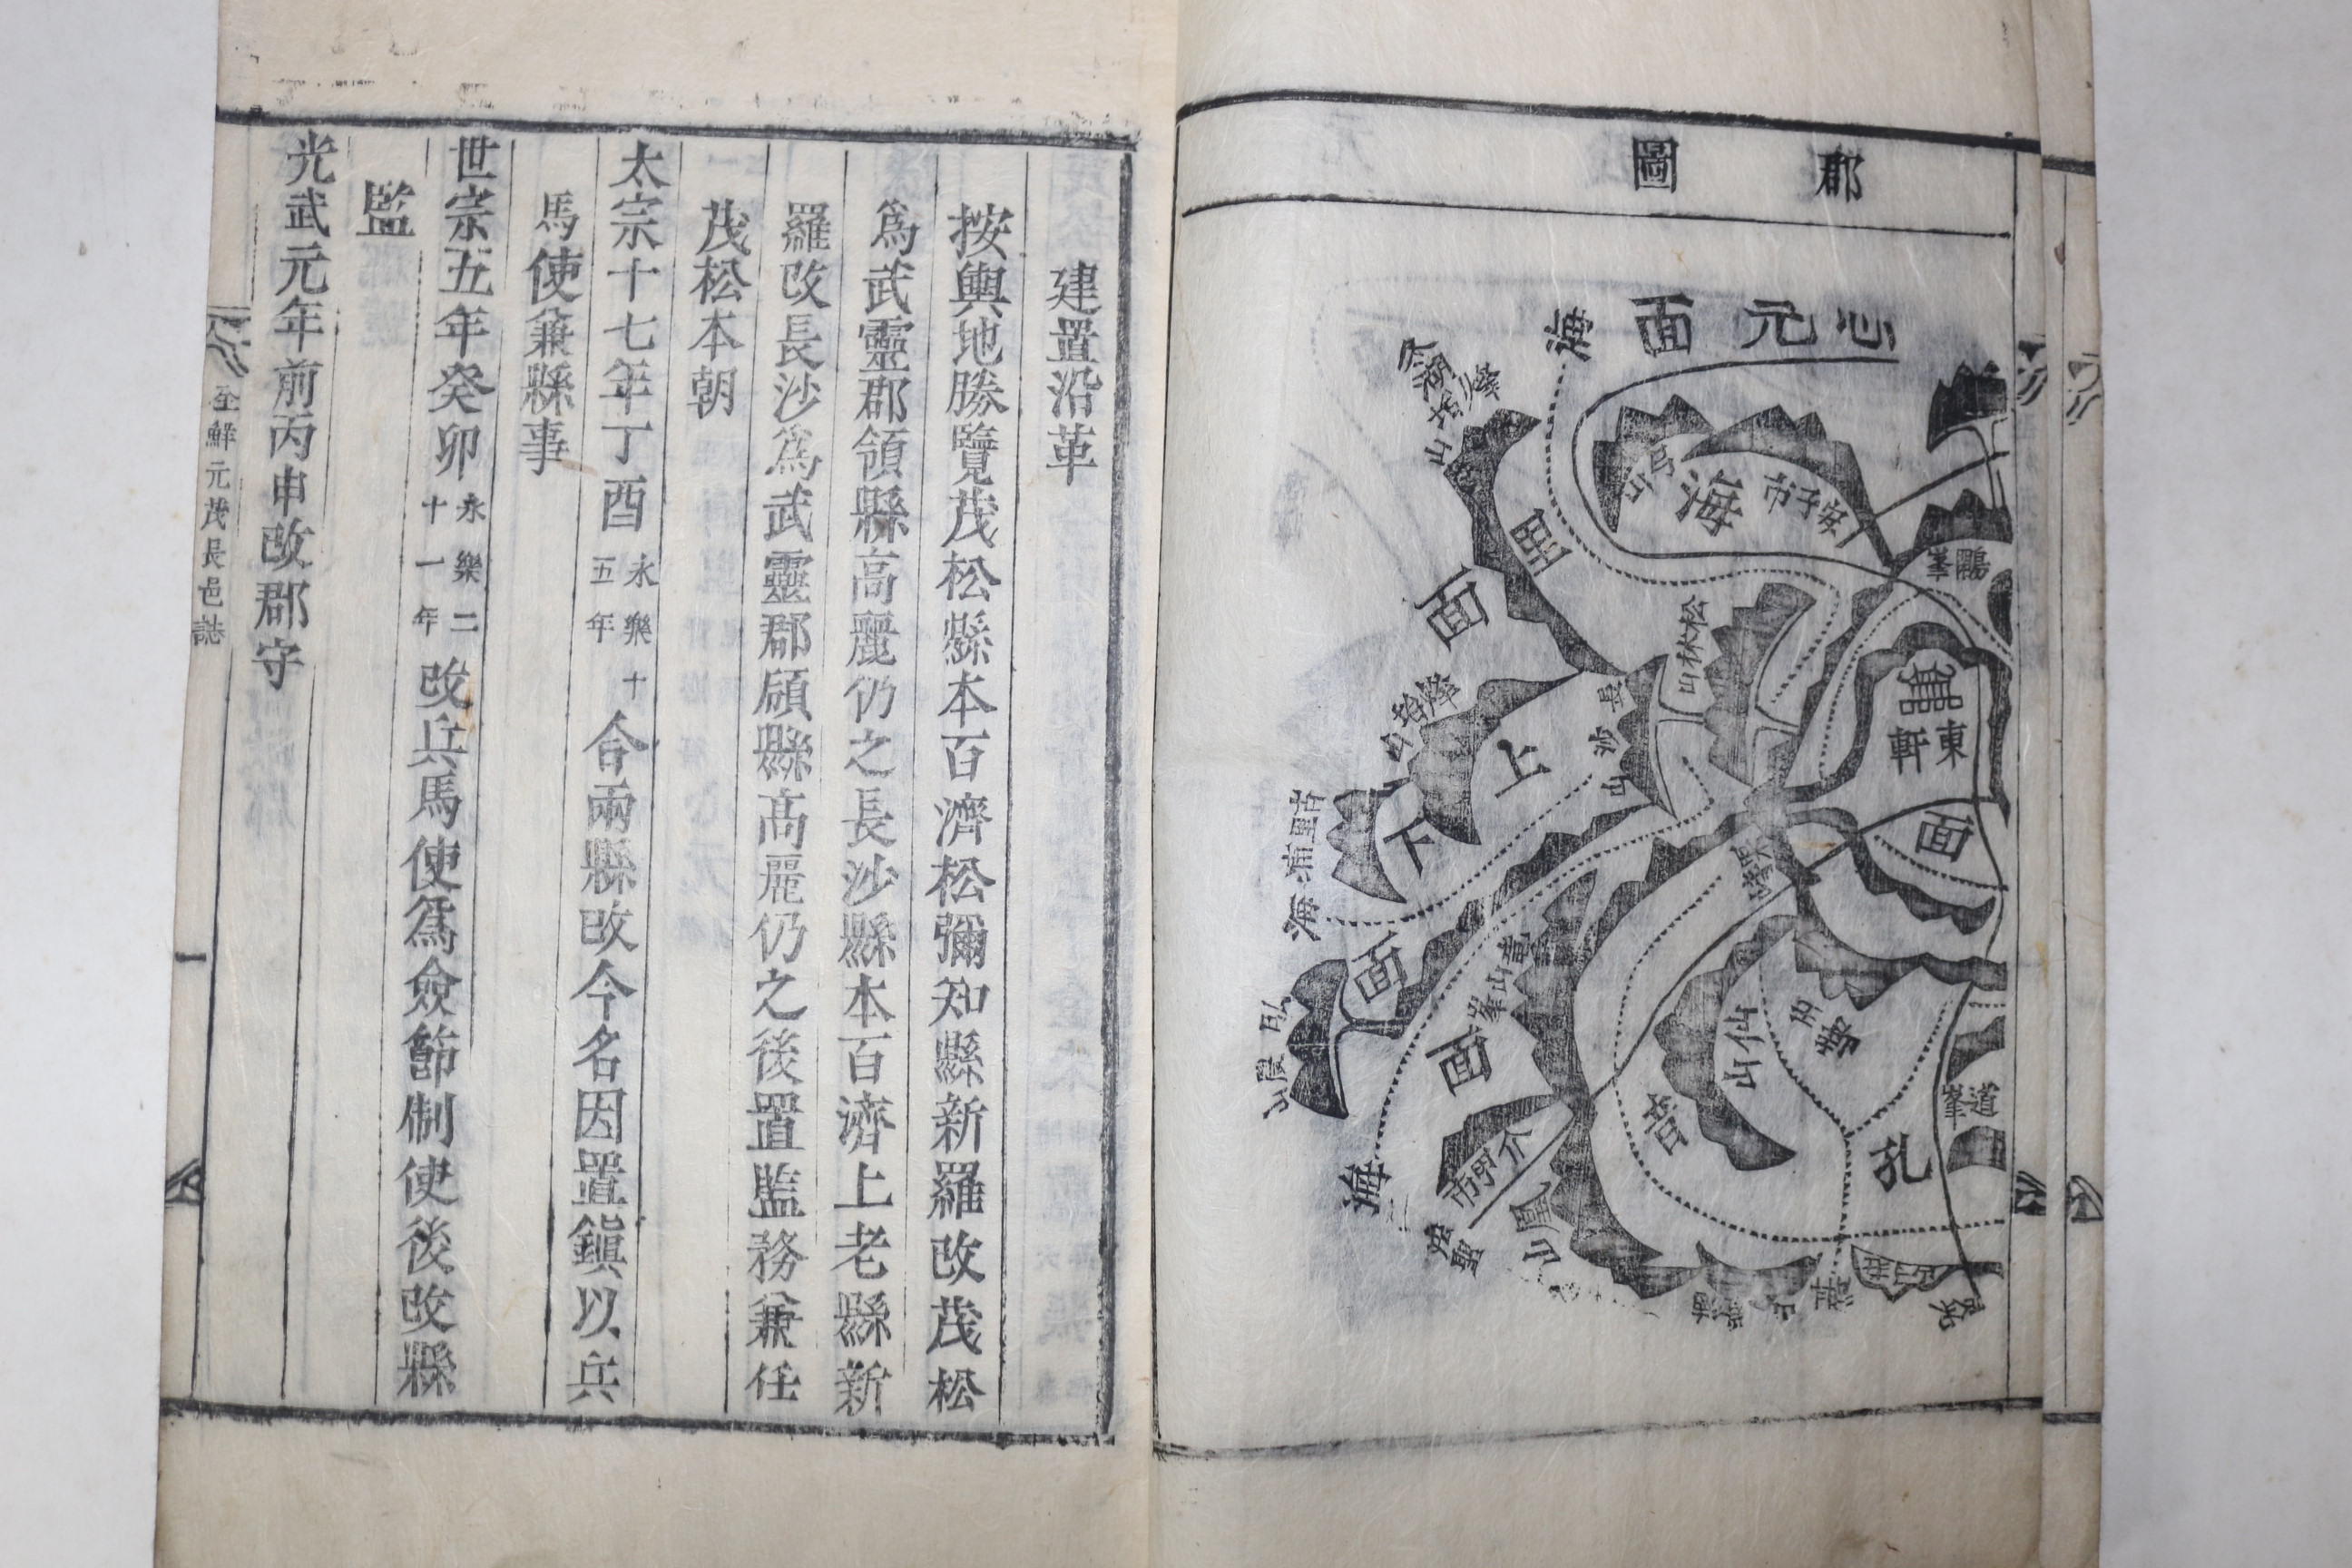 郡圖
心元面
海
海
安子市
里
面
松林山
長沙山
上
下
面
東軒
面
海
面
仙山
面
孔
道峯
海
建置沿革
按輿地勝覽茂松縣本百濟松彌知縣新羅改茂松
爲武靈郡領縣高麗仍之長沙縣本百濟上老縣新
羅改長沙爲武靈郡領縣高麗仍之後置監務兼任
茂松本朝
太宗十七年丁酉永樂十五年合兩縣改今名因置鎭以兵
馬使兼縣事
世宗五年癸卯永樂二十一年改兵馬使爲僉節制使後改縣
監
光武元年前丙申改郡守
全鮮元茂長邑誌
一